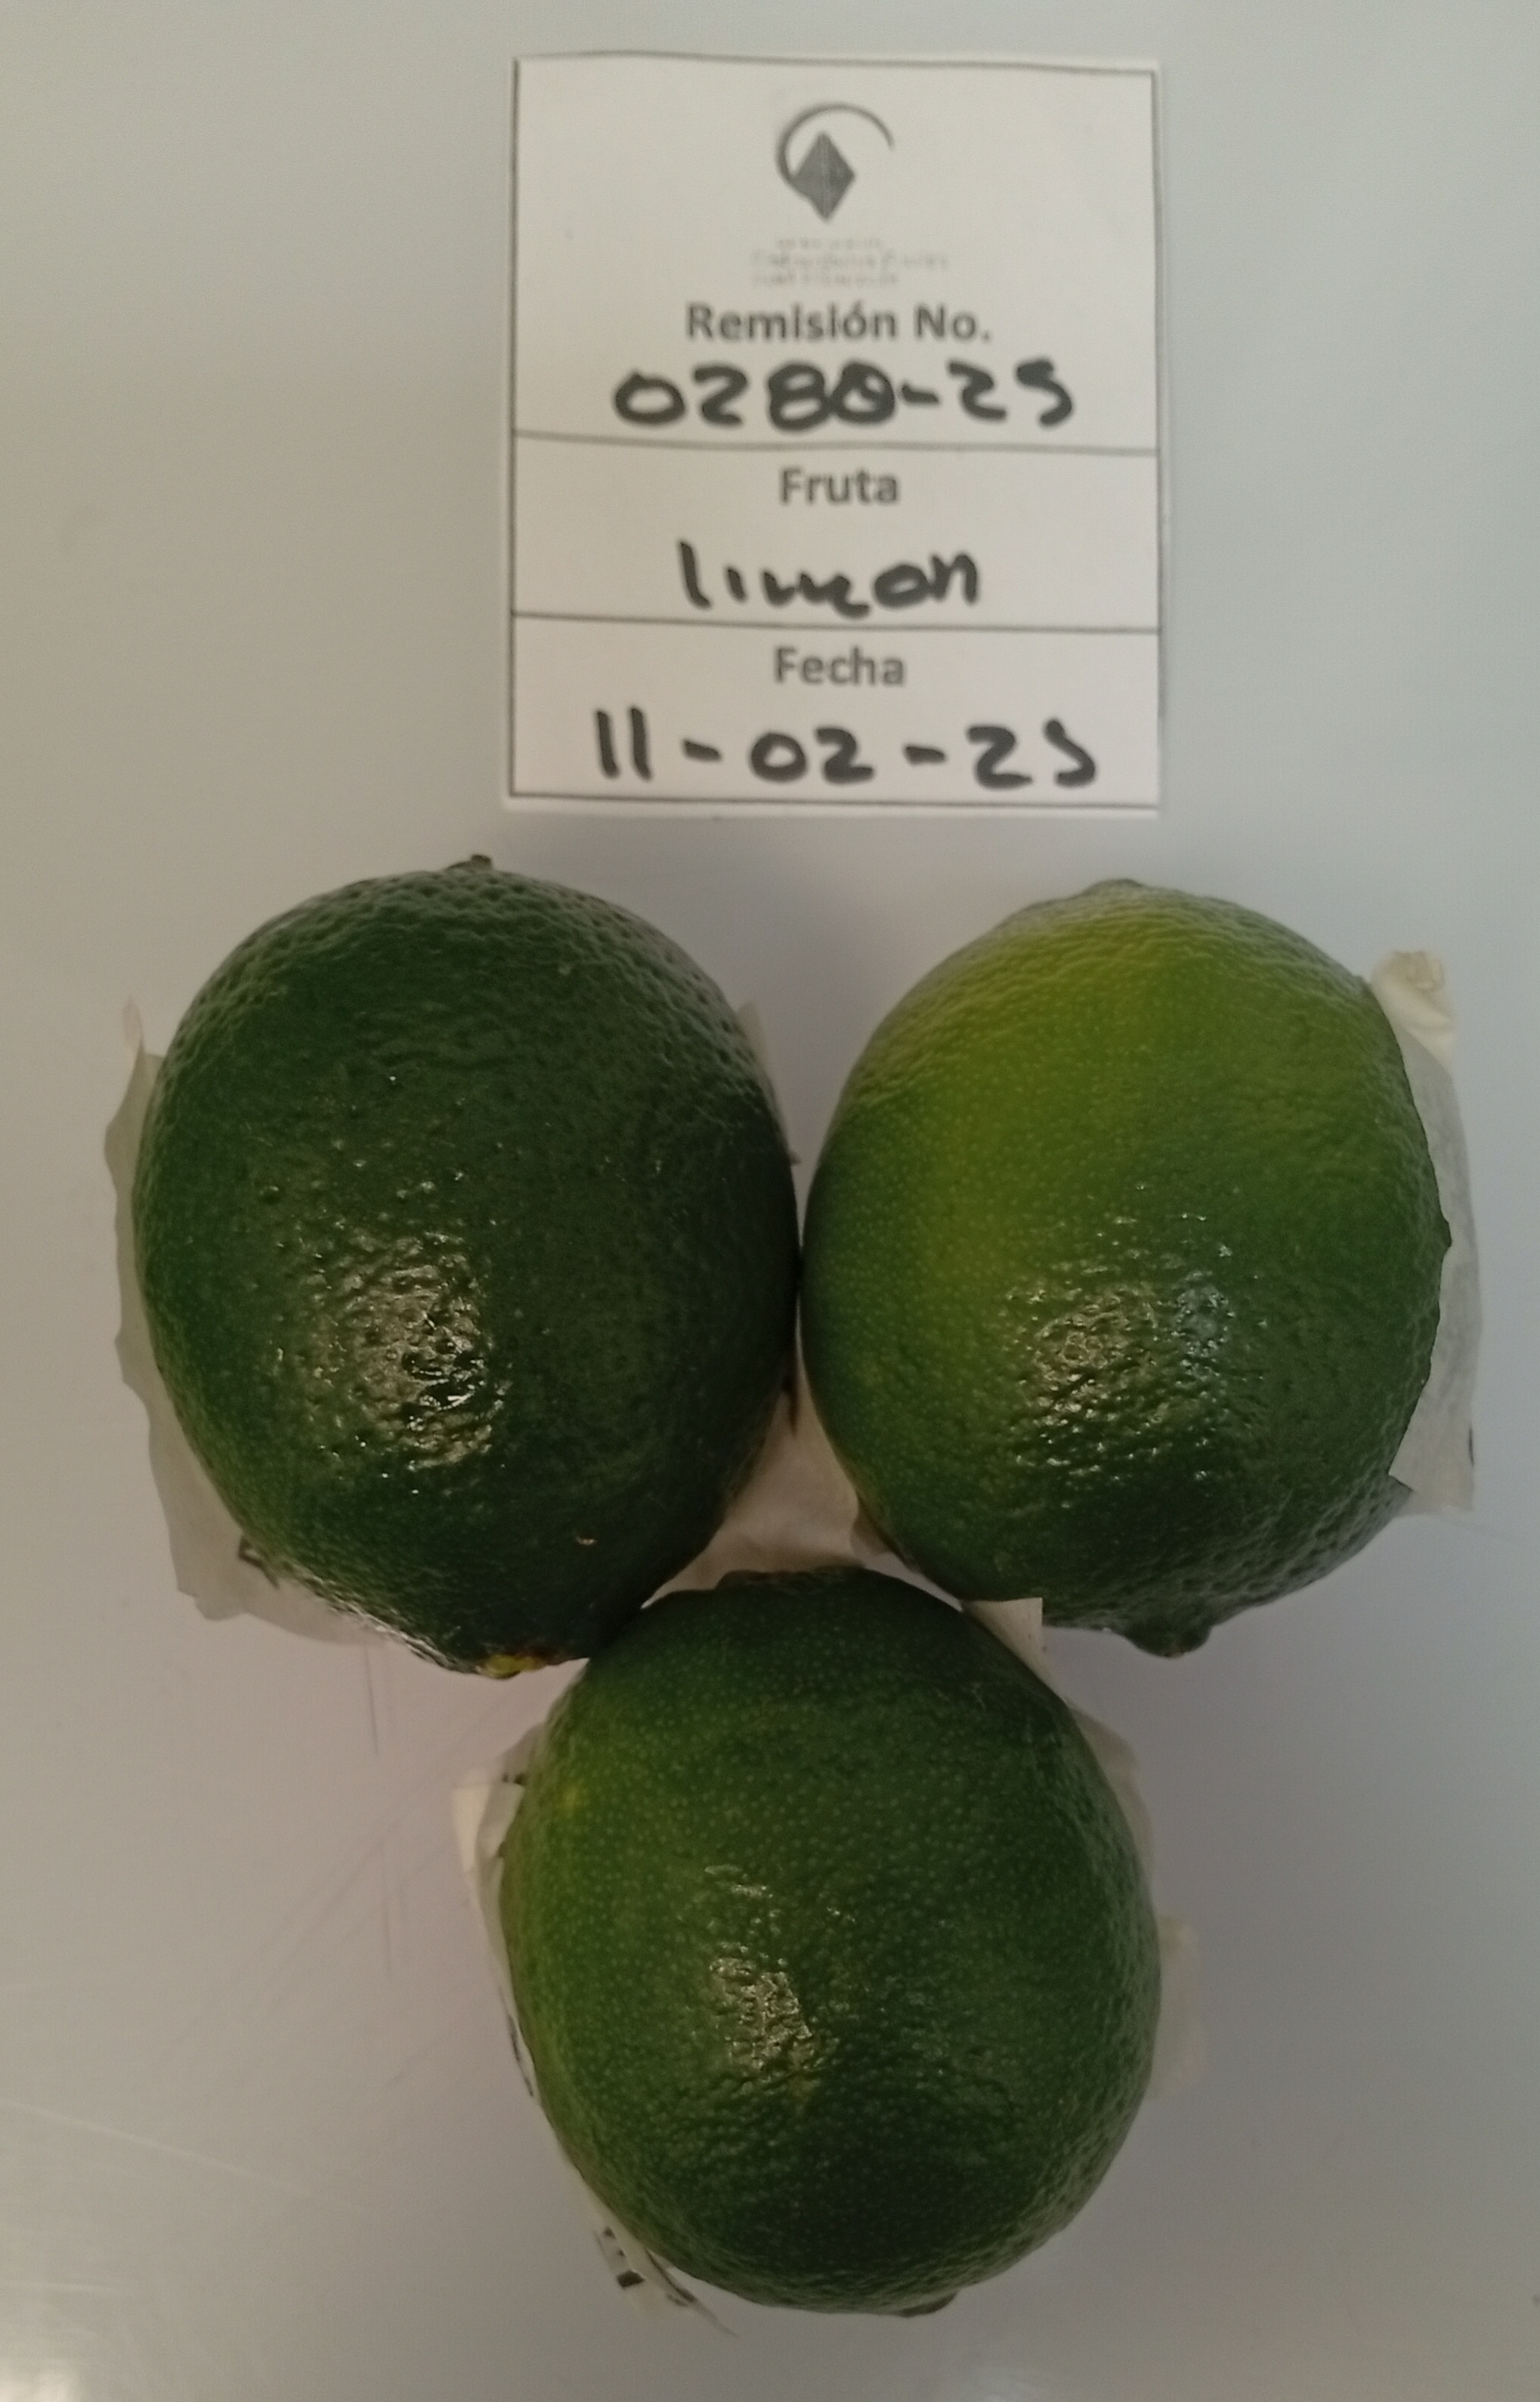 Remisión No.
0280-25
Fruta
limon
Fecha
11-02-25